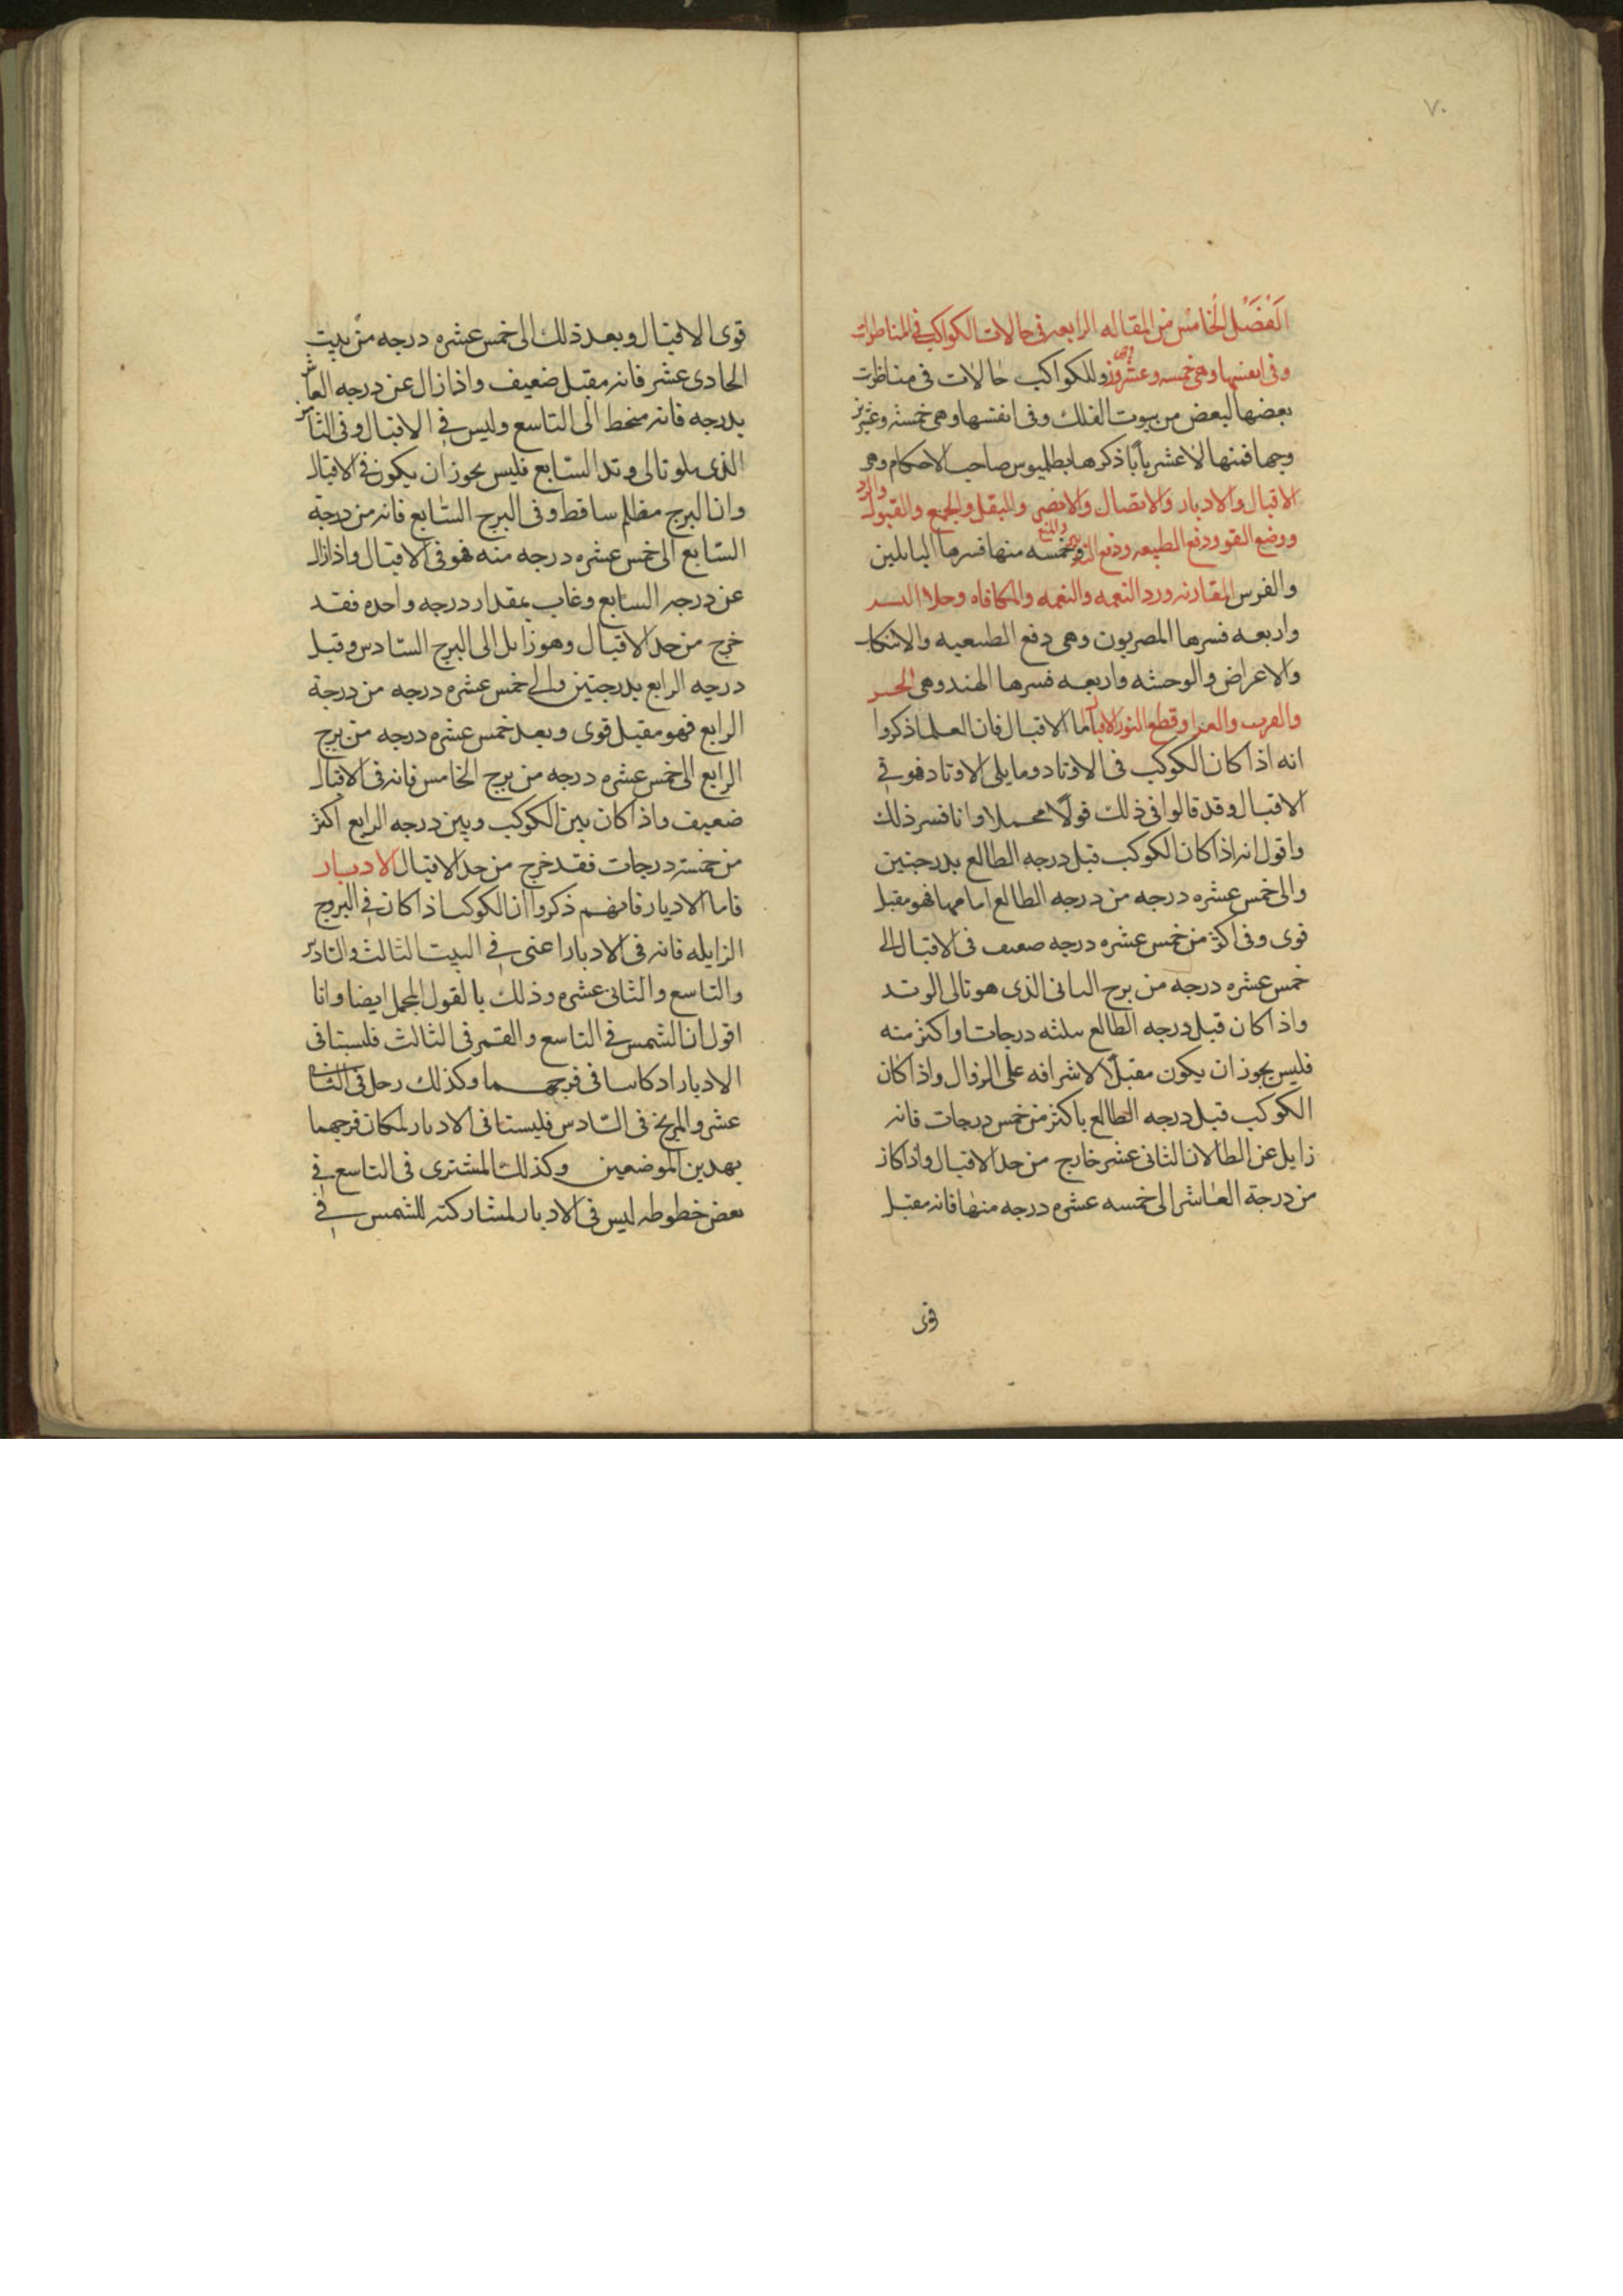 ٧٠
الفصل الخامس من المقاله الرابعه فى حالات الكواكب فى المناظرات
وفى انفسها وهى خمسه وعشرون وللكواكب حالات فى مناظرت
بعضها لبعض من بيوت الفلك وفى انفسها وهى خمسة وعشرين
وجها فمنها اثنا عشر بابا ذكرها بطلميوس صاحب الاحكام وهى
الاقبال والادبار والاتصال والانصر والنقل والجمع والقبول والرد
ودفع القو ودفع الطبيعه ودفع والمنع وخمسه منها فسرها البابلين
والفرس المقارنه ورد النعمه والنعمه والمكافاه وخلا السير
واربعه فسرها المصريون وهى دفع الطبيعيه والانتكا
والاعراض والوحشه واربعه فسرها الهند وهى
وقطع النور الاقبال اما الاقبال فان العلما ذكروا
انه اذا كان الكوكب فى الاوتاد وما يلى الاوتاد فهو فى
الاقبال وقد قالوا فى ذلك قولا محملا وانا افسر ذلك
واقول انه اذا كان الكوكب قبل درجه الطالع بدرجتين
والى خمس عشره درجه من درجه الطالع امامها فهو مقبل
قوى وفى اكثر من خمس عشره درجه ضعيف فى الاقبال الى
خمس عشره درجه من برج الثانى الذى هو تالى الوتد
واذا كان قبل درجه الطالع بثلثه درجات او اكثر منه
فليس يجوز ان يكون مقبلا لاشرافه على الزوال واذا كان
الكوكب قبل درجه الطالع باكثر من خمس درجات فانه
زايل عن الطالع لان الثانى عشر خارج من حد الاقبال واذا كان
من درجة العاشر الى خمسه عشره درجه منها فانه مقبل
قوى
قوى الاقبال وبعد ذلك الى خمس عشره درجه من بيت
الحادى عشر فانه مقبل ضعيف واذا زال عن درجه العاشر
بدرجه فانه منحط الى التاسع وليس فى الاقبال وفى الثامن
الذى يلو تالى وتد السابع فليس يجوز ان يكون فى الاقبال
وان البرج مظلم ساقط وفى البرج السابع فانه من درجة
السابع الى خمس عشره درجه منه فهو فى الاقبال واذا زال
عن درجه السابع وغاب بمقدار درجه واحده فقد
خرج من حد الاقبال وهو زايل الى البرج السادس وقبل
درجه الرابع بدرجتين والى خمس عشره درجه من درجة
الرابع فهو مقبل قوى وبعد خمس عشره درجه من برج
الرابع الى خمس عشره درجه من برج الخامس فانه فى الاقبال
ضعيف واذا كان بين الكوكب وبين درجه الرابع اكثر
من خمسة درجات فقد خرج من حد الاقبال الادبار
فاما الادبار فانهم ذكروا ان الكوكب اذا كان فى البروج
الزايله فانه فى الادبار اعنى فى البيت الثالث والسادس
والتاسع والثانى عشره وذلك بالقول المجمل ايضا وانا
اقول ان الشمس فى التاسع والقمر فى الثالث فليستا فى
الادبار اذ كانتا فى فرحهما وكذلك زحل فى الثانى
عشر والمريخ فى السادس فليستا فى الادبار لمكان فرحهما
بهذين الموضعين وكذلك المشترى فى التاسع فى
بعض خطوطه ليس فى الادبار لمشاركته للشمس فى